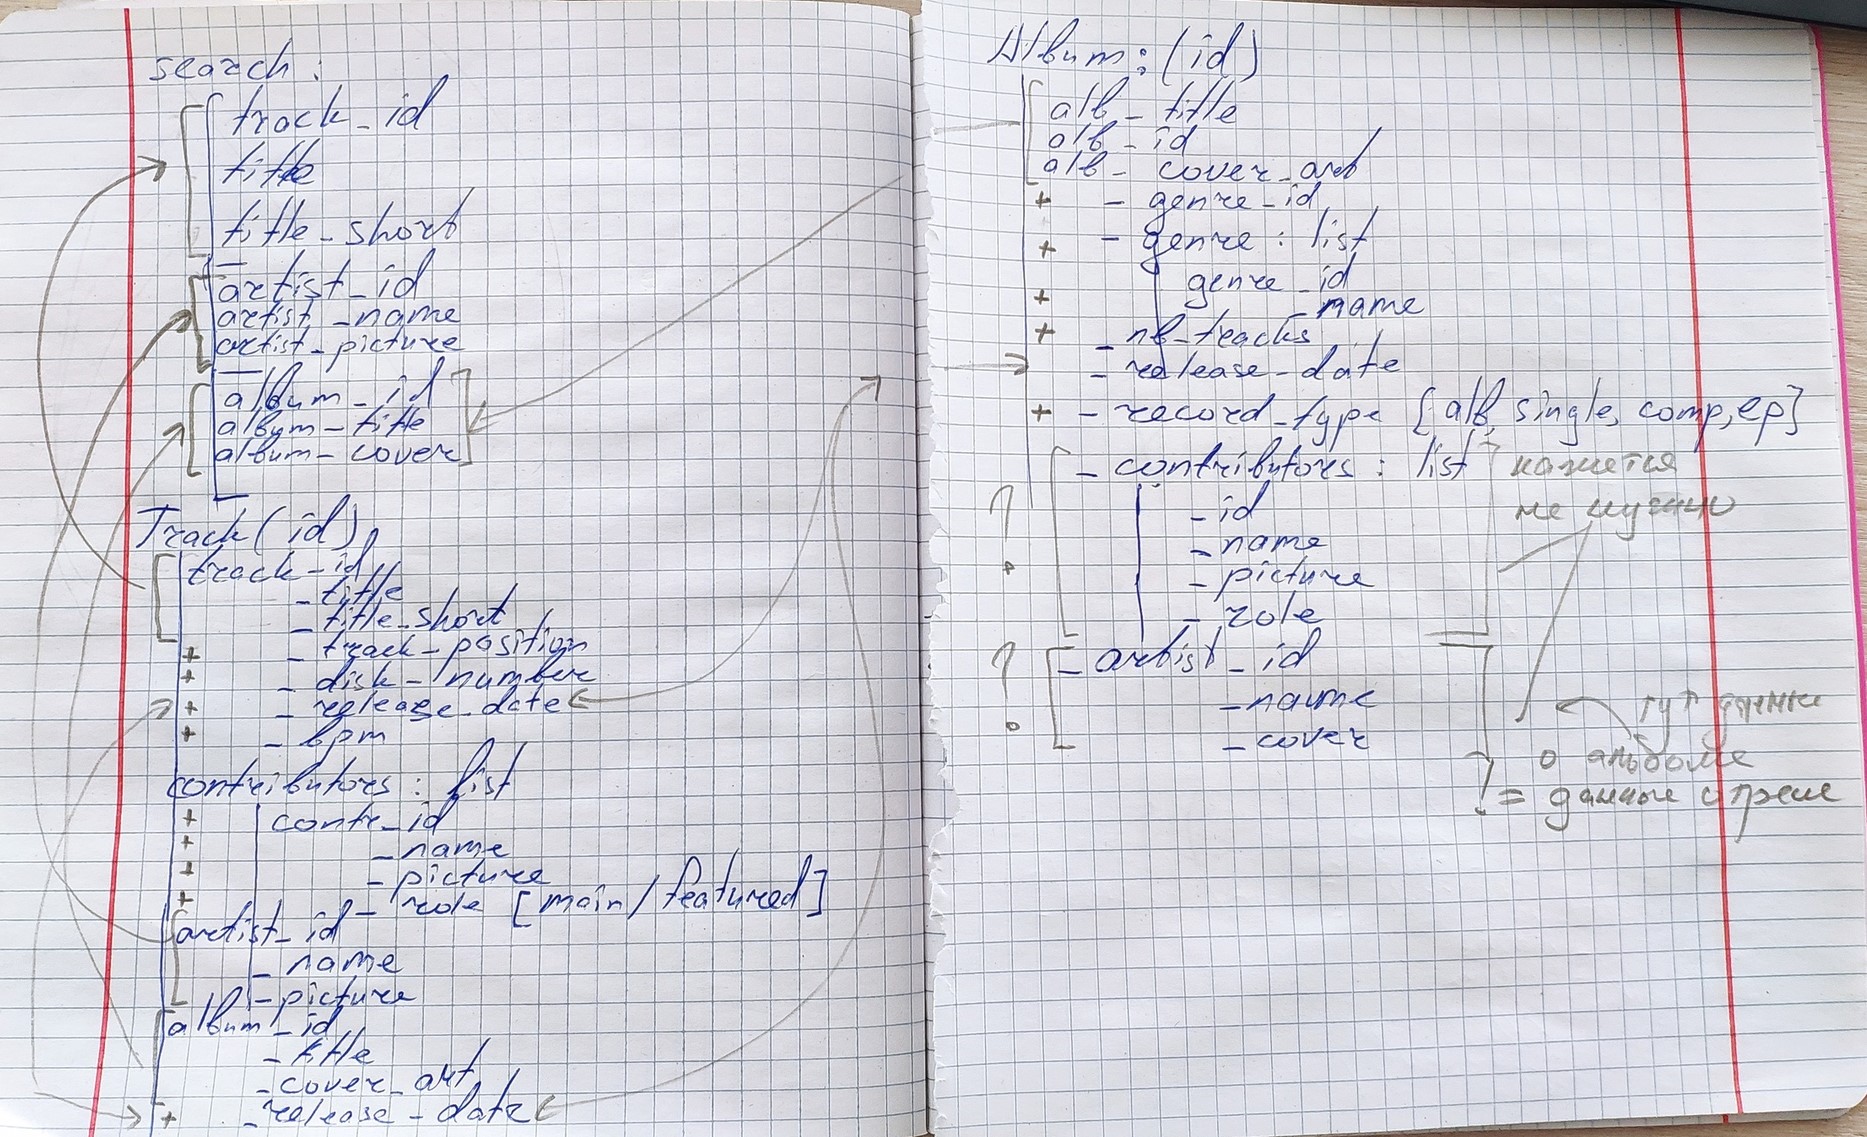 search :
track_id
title
title_short
artist_id
artist_name
artist_picture
album_id
albym_title
album_cover
Track(id)
track_id
_title
_title_short
+ _track_position
+ _disk_number
+ _release_date
+ _bpm
contributores : list
+ contr_id
+ _name
+ _picture
+ _role [main/featured]
artist_id
_name
_picture
album_id
_title
_cover_art
+ _release_date
Album : (id)
alb_title
alb_id
alb_cover_art
+ _genre_id
+ _genre : list
genre_id
+ _name
+ _nb_tracks
_release_date
+ _record_type {alb, single, comp, ep}
_contributores : list кажется
не нужно
? _id
_name
_picture
_role
? _artist_id
_name
_cover
тут данные
о альбоме
= данные о треке